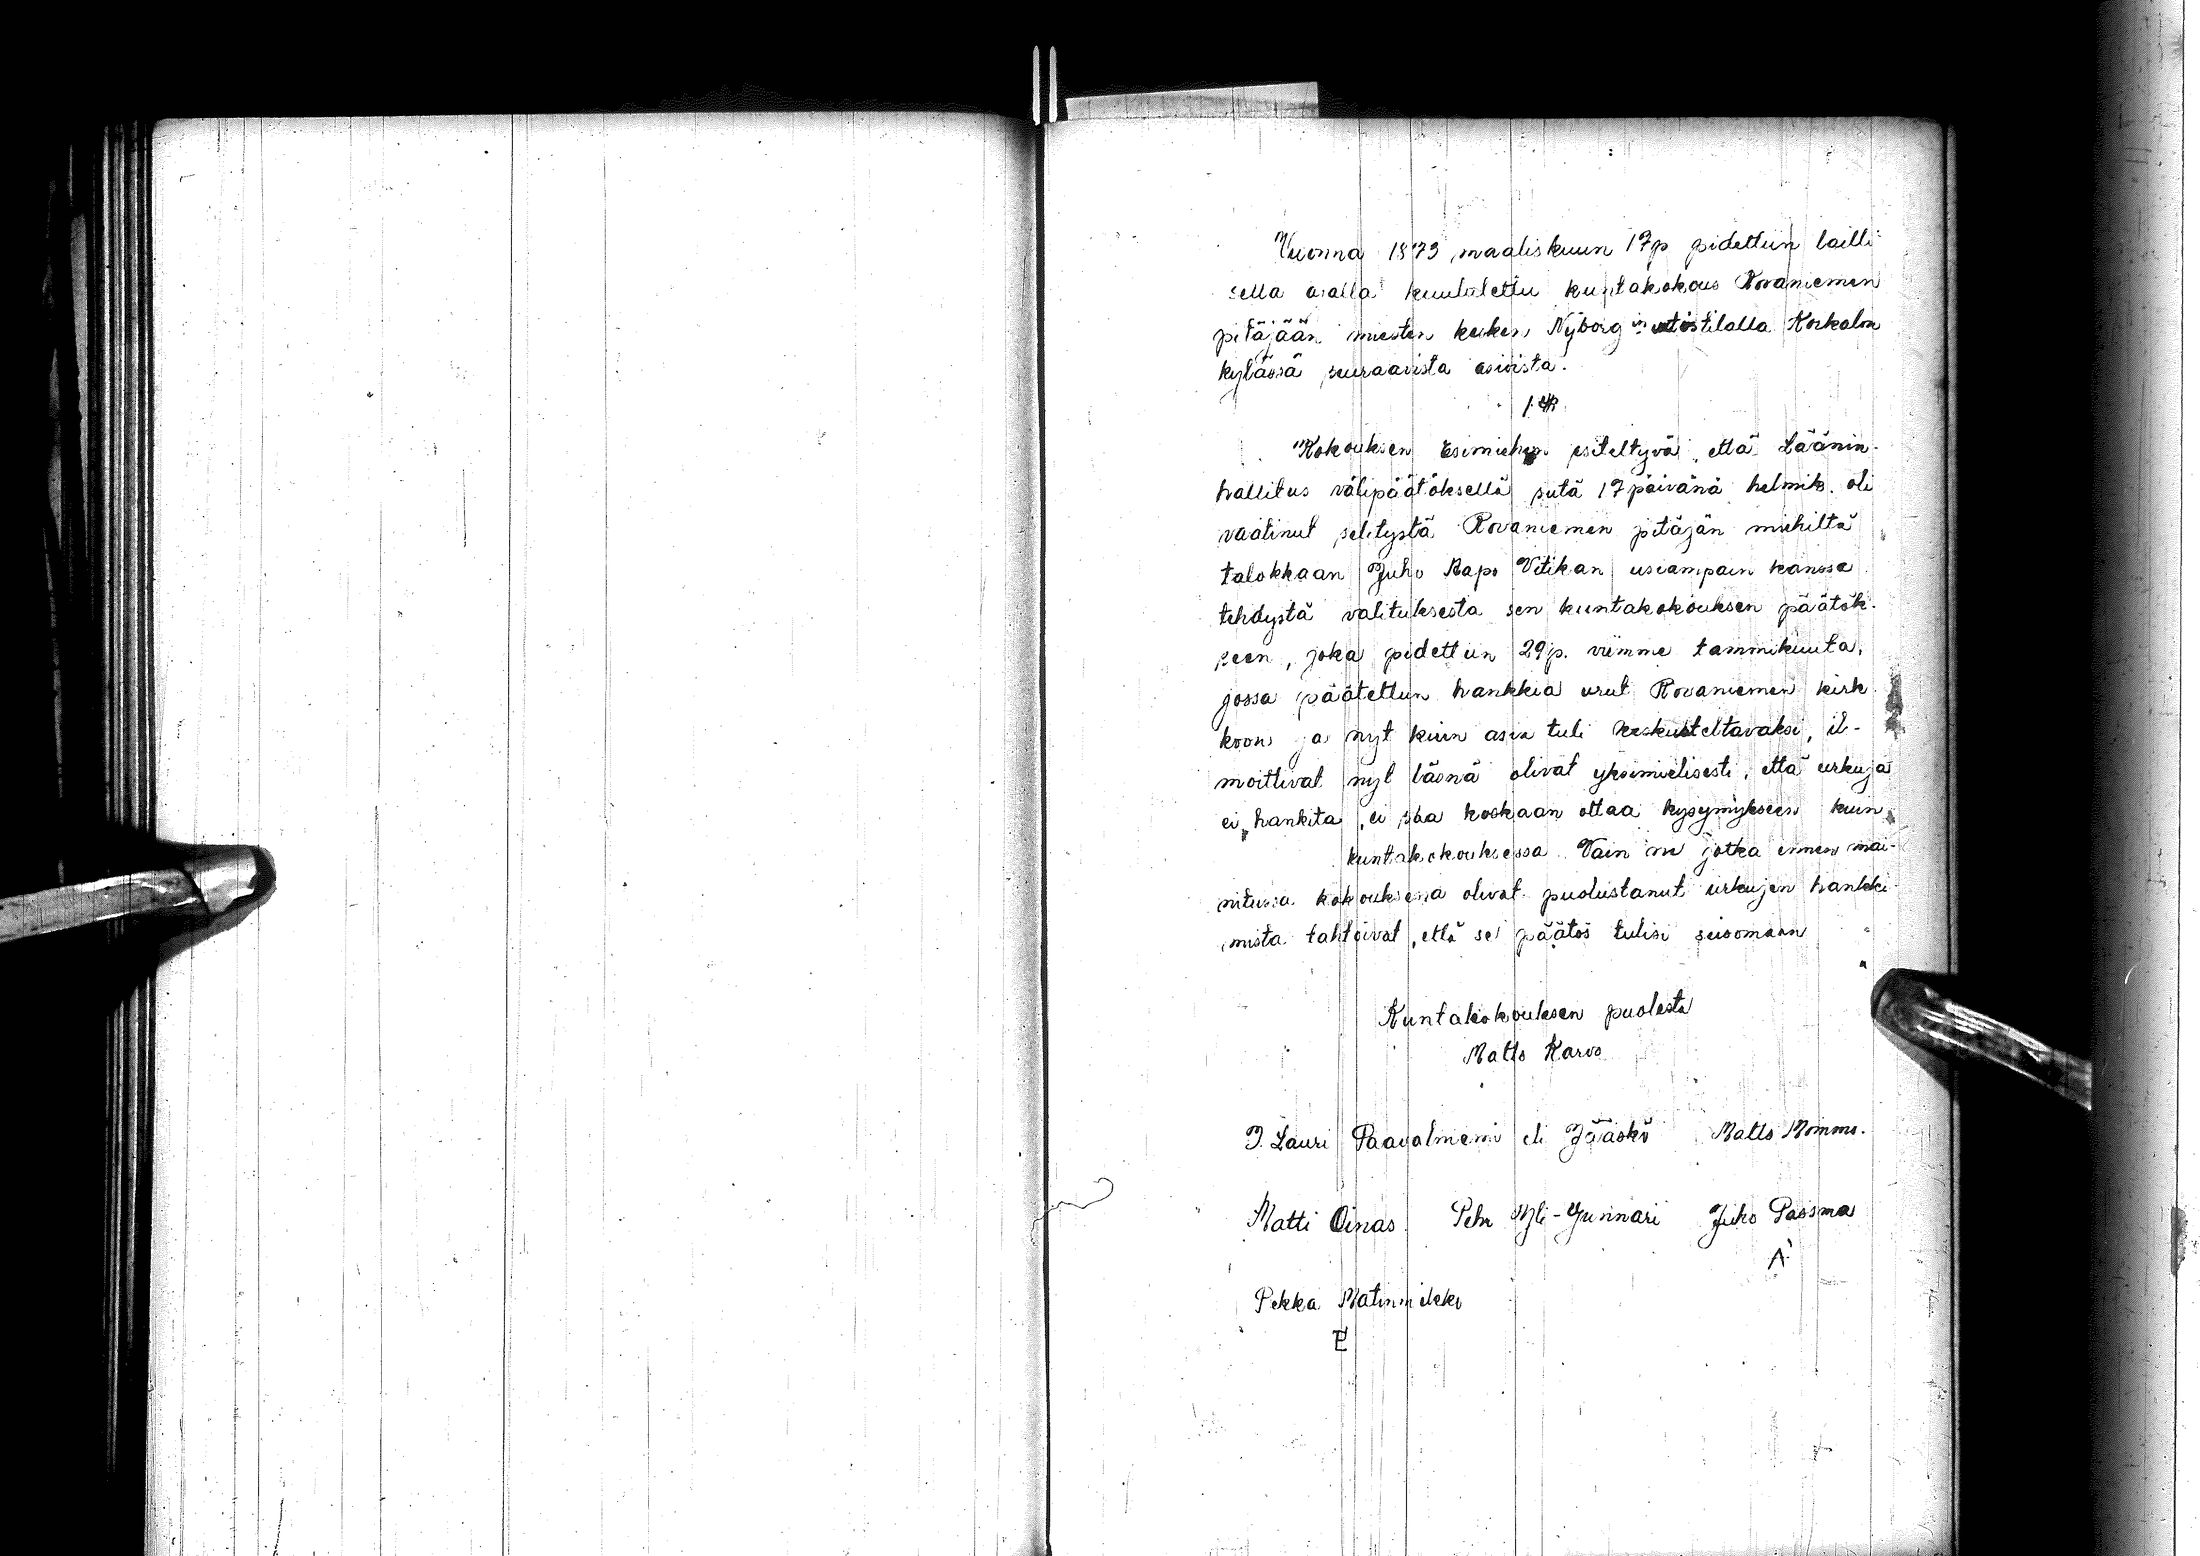 Vuonna 1873 maaliskuun 17p pidettiin lailli
sella ajalla kuulutettu kuntakokous Rovaniemen
pitäjään miesten kesken Nyborg in uutistilalla Korkalon
kylässä seuraavista asioista.
1 §
Kokouksen Esimiehen esiteltyvä, että Läänin-
hallitus välipäätöksellä siitä 17 päivänä helmik. oli
vaatinut selitystä Rovaniemen pitäjän miehiltä
talokkaan Juho Rapo Vitikan usiampain kanssa
tehdystä valituksesta sen kuntakokouksen päätök-
seen, joka pidettiin 29p. viimme tammikuuta,
jossa päätettiin hankkia urut Rovaniemen kirk
koon ja nyt kuin asia tuli keskusteltavaksi, il-
moittivat nyt läsnä olivat yksimielisesti, että urkuja
ei hankita, ei saa koskaan ottaa kysymykseen kuin
kuntakokouksessa. Vain ne jotka ennen mai-
nitussa kokouksessa olivat puolustanut urkujen hankki-
mista tahtoivat, että se päätös tulisi seisomaan
Kuntakokouksen puolesta
Matts Karvo
J. Lauri Paavalniemi eli Jääskö Matts Mommo.
Matti Oinas. Pehr Yli-Junnari Juho Paosma
Pekka Matinmikko